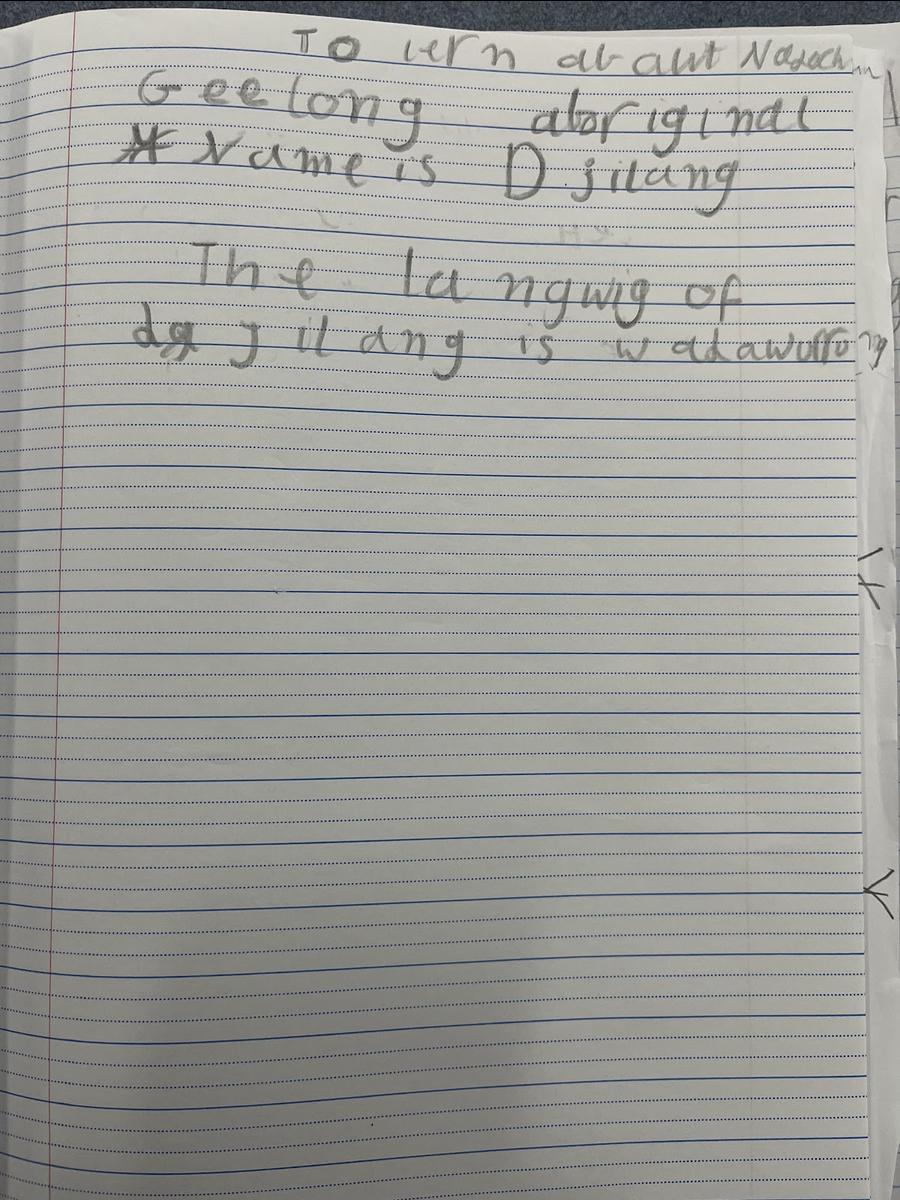 To lern abawt
Geelong aboriginal
Name is Djilang
The langwig of
jilang is wadawurrong